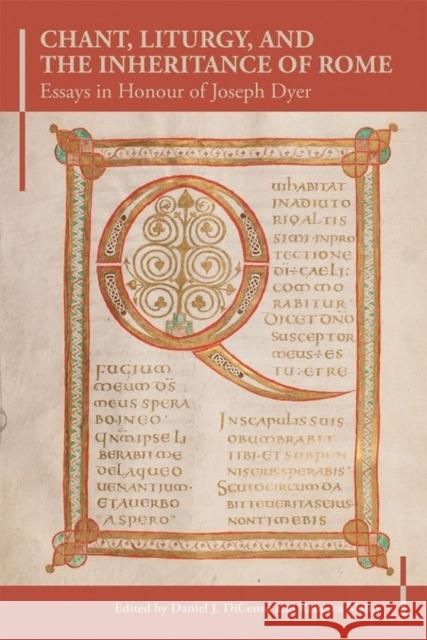 CHANT, LITURGY, AND
THE INHERITANCE OF ROME
Essays in Honour of Joseph Dyer
QUIHABITAT
INADIUTO
RIOALTIS
SIMI·INPRO
TECTIONE
DI÷CAELI:
COMMO
RABITUR
DICETDNO
SUSCEPTOR
MEUS÷ES
TU:ETRE
FUGIUM
MEUM DS
MEUS SPERA
BOINEO
QNMIPSELI
BERABIT ME
DELAQUEO
UENANTIUM·
ETAUERBO
ASPERO
INSCAPULISSUIS
OBUMBRABIT
TIBI·ETSUBPEN
NISEIUSSPERABIS
SCUTOCIRCUMDA
BITTEUERITASEIUS·
NONTIMEBIS
Edited by Daniel J. DiCenso